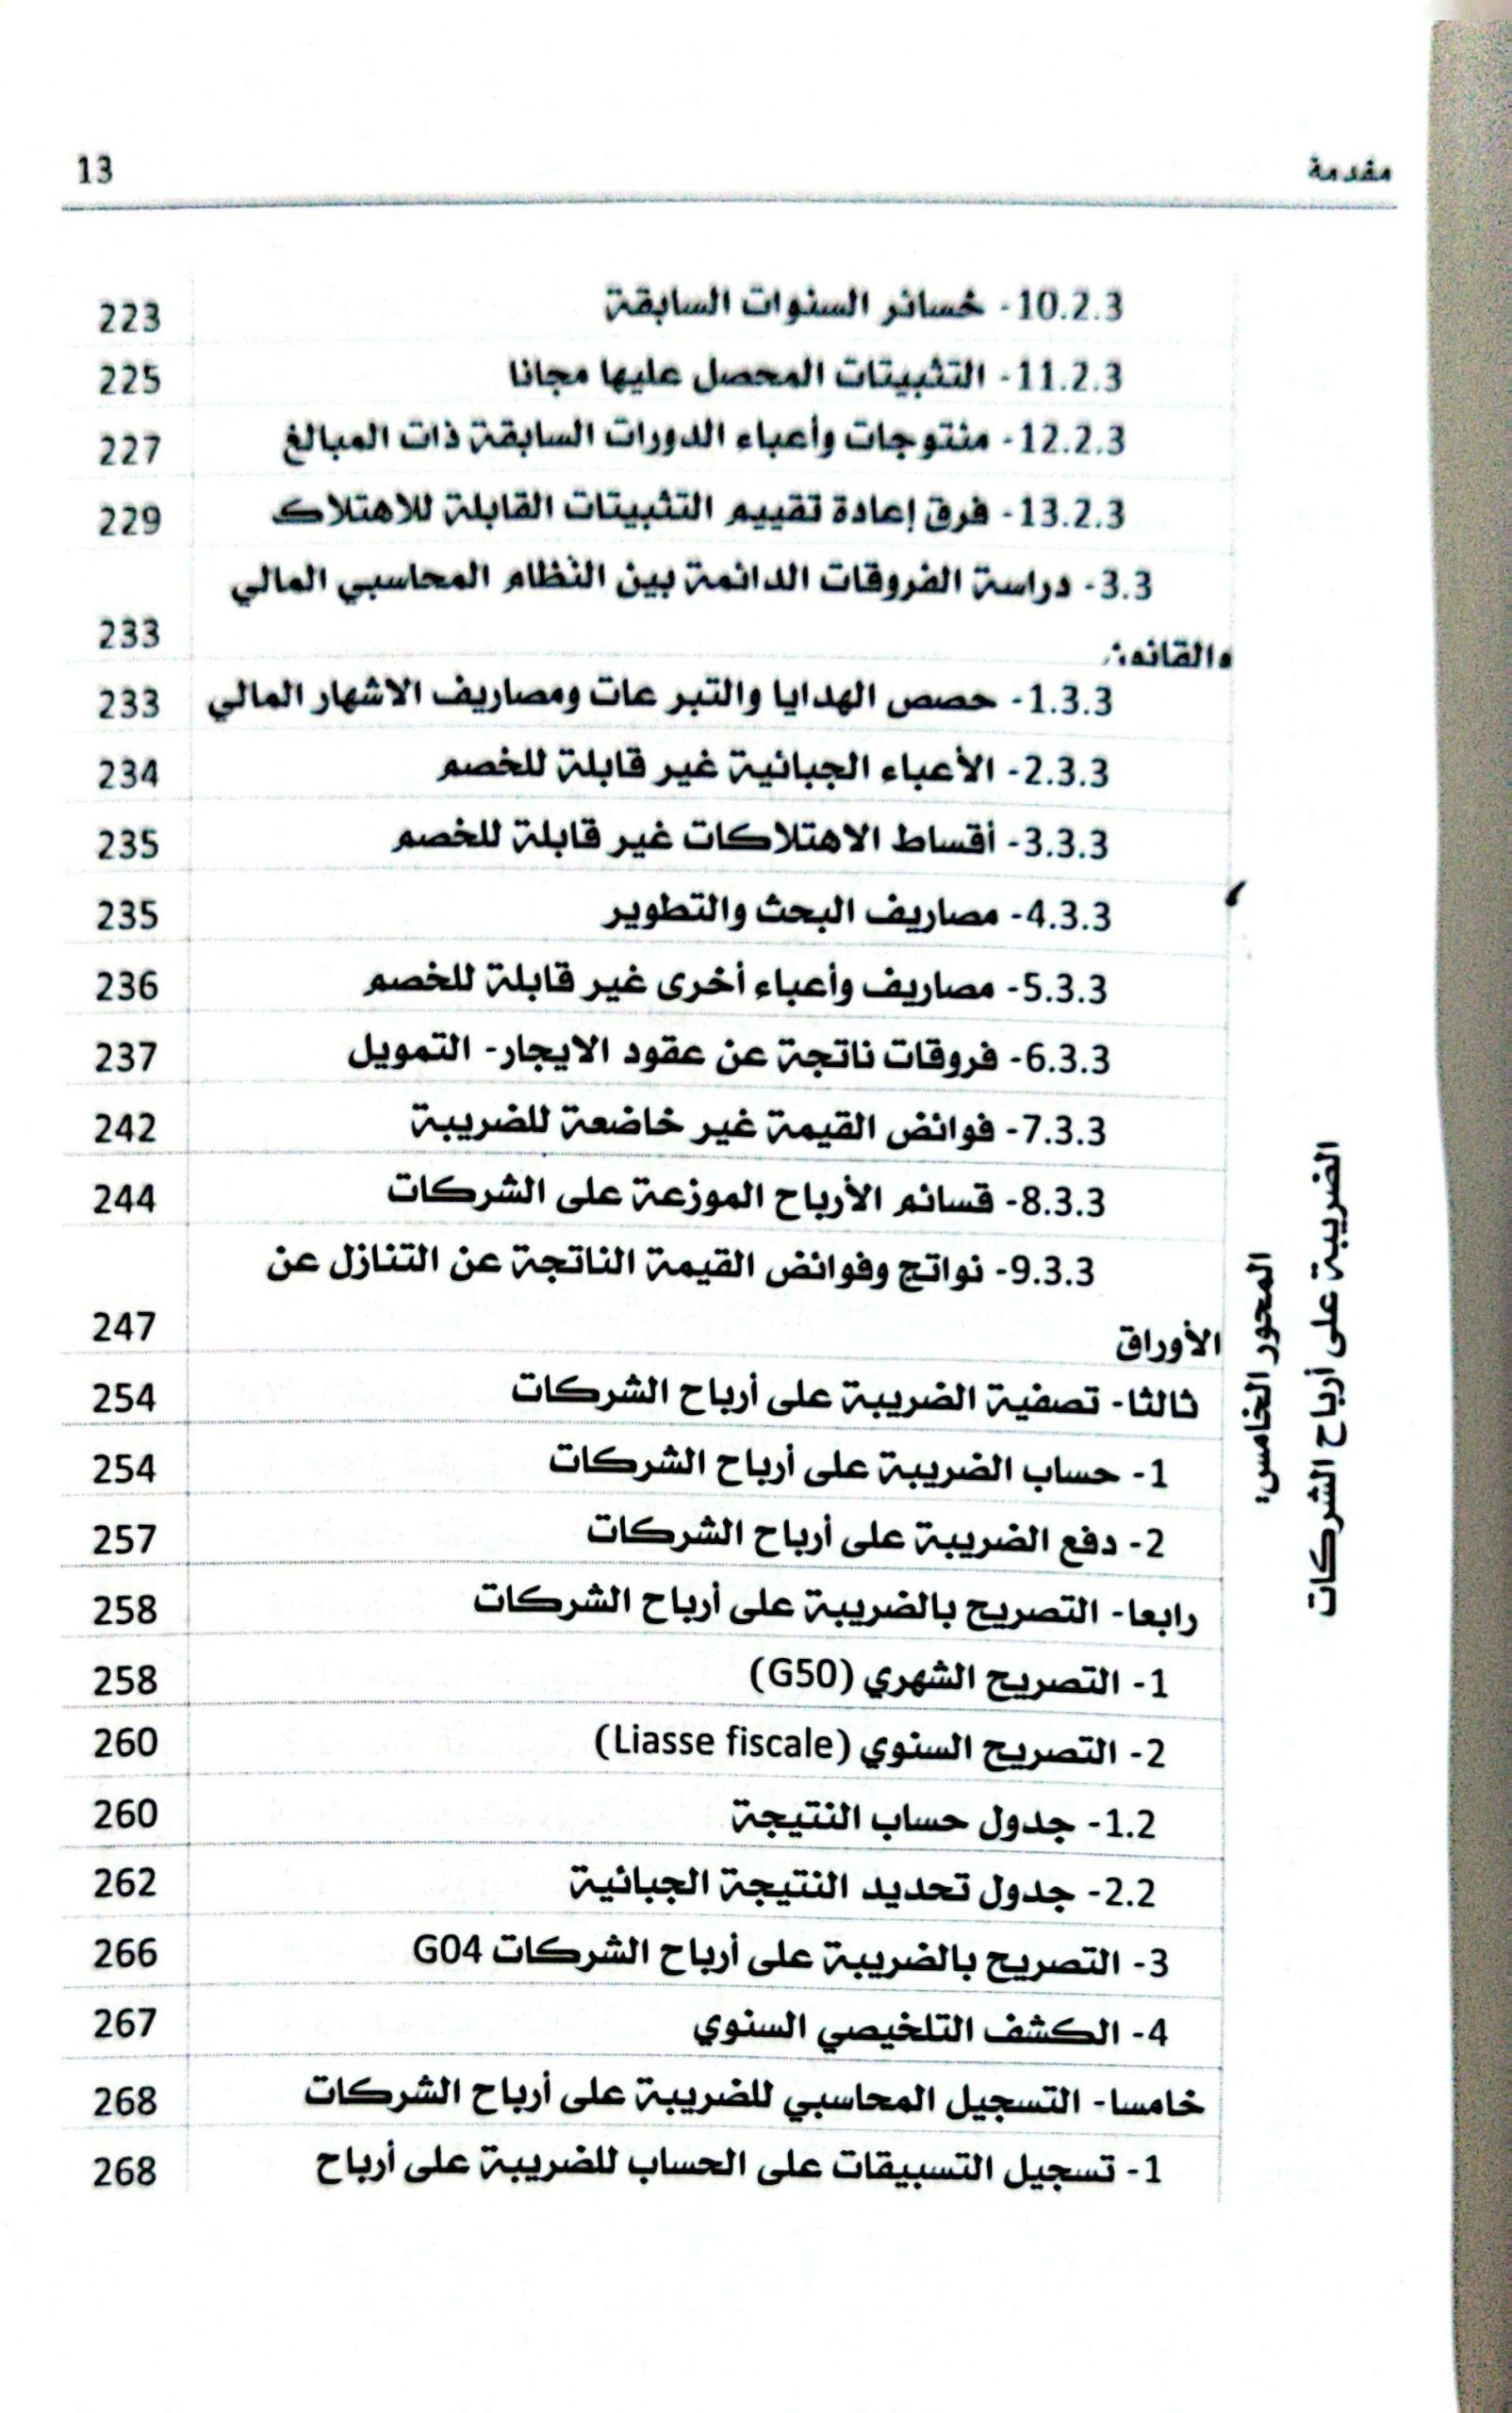 مقدمة 13
10.2.3- خسائر السنوات السابقة 223
11.2.3- التثبيتات المحصل عليها مجانا 225
12.2.3- منتوجات وأعباء الدورات السابقة ذات المبالغ 227
13.2.3- فرق إعادة تقييم التثبيتات القابلة للاهتلاك 229
3.3- دراسة الفروقات الدائمة بين النظام المحاسبي المالي
233
1.3.3- حصص الهدايا والتبرعات ومصاريف الاشهار المالي 233
2.3.3- الأعباء الجبائية غير قابلة للخصم 234
3.3.3- أقساط الاهتلاكات غير قابلة للخصم 235
4.3.3- مصاريف البحث والتطوير 235
5.3.3- مصاريف وأعباء أخرى غير قابلة للخصم 236
6.3.3- فروقات ناتجة عن عقود الايجار- التمويل 237
7.3.3- فوائض القيمة غير خاضعة للضريبة 242
8.3.3- قسائم الأرباح الموزعة على الشركات 244
9.3.3- نواتج وفوائض القيمة الناتجة عن التنازل عن
الأوراق 247
ثالثا- تصفية الضريبة على أرباح الشركات 254
1- حساب الضريبة على أرباح الشركات 254
2- دفع الضريبة على أرباح الشركات 257
رابعا- التصريح بالضريبة على أرباح الشركات 258
1- التصريح الشهري (G50) 258
2- التصريح السنوي (Liasse fiscale) 260
1.2- جدول حساب النتيجة 260
2.2- جدول تحديد النتيجة الجبائية 262
3- التصريح بالضريبة على أرباح الشركات G04 266
4- الكشف التلخيصي السنوي 267
خامسا- التسجيل المحاسبي للضريبة على أرباح الشركات 268
1- تسجيل التسبيقات على الحساب للضريبة على أرباح 268
المحور الخامس:
الضريبة على أرباح الشركات